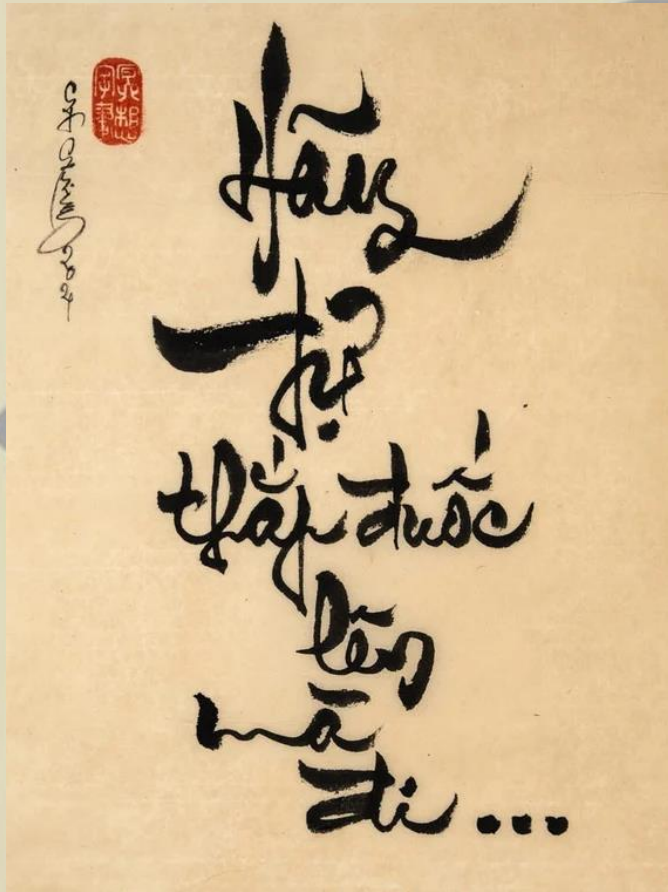 Hãy
tự
thắp đuốc
lên
mà
đi...